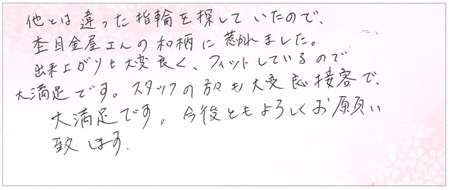 他とは違った指輪を探していたので、
杢目金屋さんの和柄に惹れました。
出来上がりも大変良く、フィットしているので
大満足です。スタッフの方々も大変良い接客で、
大満足です。今後ともよろしくお願い
致します。